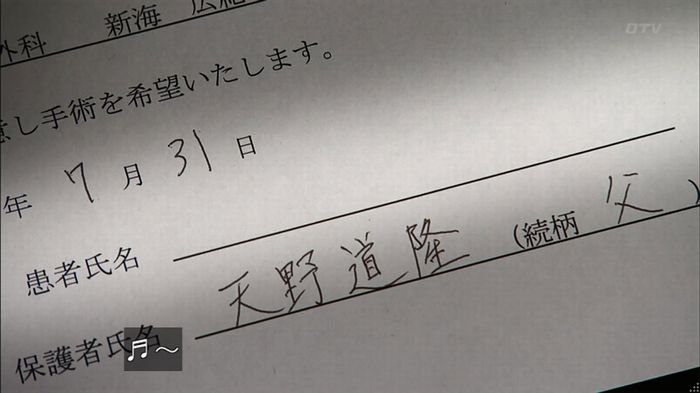 外科 新海 広
OTV
意し手術を希望いたします。
年 7月 31日
患者氏名
保護者氏名 天野道隆 (続柄 父)
♬～